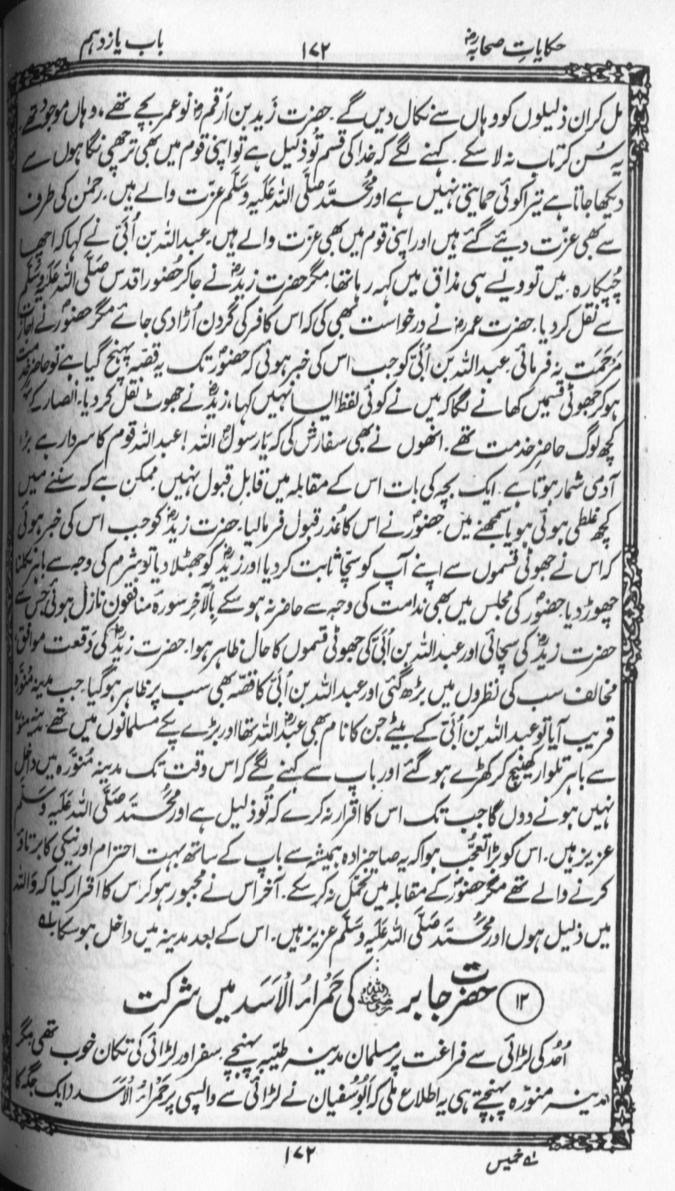 حکایاتِ صحابہؓ ۱۷۲ باب یازدہم
مل کر ان ذلیلوں کو وہاں سے نکال دیں گے۔ حضرت زید بن ارقمؓ نوعمر بچے تھے، وہاں موجود تھے،
یہ سُن کر تاب نہ لاسکے۔ کہنے لگے کہ خدا کی قسم تُو ذلیل ہے تو اپنی قوم میں بھی ترچھی نگاہوں سے
دیکھا جاتا ہے تیرا کوئی حمایتی نہیں ہے اور محمّد صلّی اللہ علیہ وسلّم عزّت والے ہیں، رحمٰن کی طرف
سے بھی عزّت دیئے گئے ہیں اور اپنی قوم میں بھی عزّت والے ہیں۔ عبداللہ بن اُبَیّ نے کہا کہ اچھا
چُپکا رہ۔ میں تو ویسے ہی مذاق میں کہہ رہا تھا، مگر حضرت زیدؓ نے جا کر حضورِ اقدس صلّی اللہ علیہ وسلّم
سے نقل کر دیا۔ حضرت عمرؓ نے درخواست بھی کی کہ اس کافر کی گردن اُڑا دی جائے مگر حضورؐ نے اجازت
مرحمت نہ فرمائی۔ عبداللہ بن اُبَیّ کو جب اس کی خبر ہوئی کہ حضورؐ تک یہ قصہ پہنچ گیا ہے تو حاضرِ خدمت
ہو کر جھوٹی قسمیں کھانے لگا کہ میں نے کوئی لفظ ایسا نہیں کہا، زیدؓ نے جھوٹ نقل کر دیا۔ انصار کے بھی
کچھ لوگ حاضرِ خدمت تھے۔ انھوں نے بھی سفارش کی کہ یا رسولَ اللہ! عبداللہ قوم کا سردار ہے بڑا
آدمی شمار ہوتا ہے۔ ایک بچہ کی بات اس کے مقابلہ میں قابلِ قبول نہیں، ممکن ہے کہ سننے میں
کچھ غلطی ہوئی ہو یا سمجھنے میں۔ حضورؐ نے اس کا عُذر قبول فرما لیا۔ حضرت زیدؓ کو جب اس کی خبر ہوئی
کہ اس نے جھوٹی قسموں سے اپنے آپ کو سچّا ثابت کر دیا اور زیدؓ کو جھٹلا دیا تو شرم کی وجہ سے باہر نکلنا
چھوڑ دیا۔ حضورؐ کی مجلس میں بھی ندامت کی وجہ سے حاضر نہ ہو سکے بالآخر سورہ منافقون نازل ہوئی جس سے
حضرت زیدؓ کی سچائی اور عبداللہ بن اُبَیّ کی جھوٹی قسموں کا حال ظاہر ہوا۔ حضرت زیدؓ کی وقعت موافق
مخالف سب کی نظروں میں بڑھ گئی اور عبداللہ بن اُبَیّ کا قصّہ بھی سب پر ظاہر ہو گیا۔ جب مدینہ منوّرہ
قریب آیا تو عبداللہ بن اُبَیّ کے بیٹے جن کا نام بھی عبداللہؓ تھا اور بڑے پکے مسلمانوں میں تھے مدینہ منوّرہ
سے باہر تلوار کھینچ کر کھڑے ہو گئے اور باپ سے کہنے لگے کہ اس وقت تک مدینہ منوّرہ میں داخل
نہیں ہونے دوں گا جب تک اس کا اقرار نہ کرے کہ تُو ذلیل ہے اور محمّد صلّی اللہ علیہ وسلّم
عزیز ہیں۔ اس کو بڑا تعجّب ہوا کہ یہ صاحبزادہ ہمیشہ سے باپ کے ساتھ بہت احترام اور نیکی کا برتاؤ
کرنے والے تھے مگر حضورؐ کے مقابلہ میں تحمّل نہ کر سکے۔ آخر اس نے مجبور ہو کر اس کا اقرار کیا کہ واللہ
میں ذلیل ہوں اور محمّد صلّی اللہ علیہ وسلّم عزیز ہیں۔ اس کے بعد مدینہ میں داخل ہو سکا۔ لہ
۱۲ حضرت جابر رضی اللہ عنہ کی حمراءُ الاسد میں شرکت
اُحد کی لڑائی سے فراغت پر مسلمان مدینہ طیبہ پہنچے، سفر اور لڑائی کی تکان خوب تھی مگر
مدینہ منوّرہ پہنچتے ہی یہ اطلاع ملی کہ ابوسفیان نے لڑائی سے واپسی پر حمراءُ الاسد (ایک جگہ کا
لہ خمیس
۱۷۲